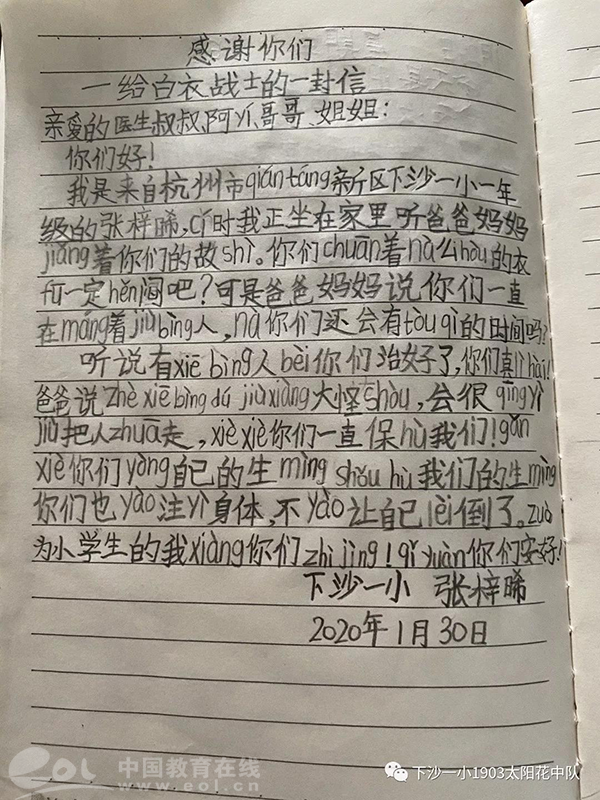 感谢你们
一给白衣战士的一封信
亲爱的医生叔叔,阿yí、哥哥、姐姐:
你们好!
我是来自杭州市qián táng新区下沙一小一年
级的张梓晞,cǐ时我正坐在家里,听爸爸妈妈
jiǎng着你们的故shì。你们chuān着nà么hòu的衣
fú一定hěn闷吧?可是爸爸妈妈说你们一直
在máng着jiù bìng人,nà你们还会有tòu qì的时间吗?
听说有xiē bìng人bèi你们治好了,你们真lì hài!
爸爸说zhè xiē bìng dú jiù xiàng大怪shòu,会很qīng yì
jiù把人zhuā走,xiè xiè你们一直保hù我们!gǎn
xiè你们yòng自己的生mìng shǒu hù我们的生mìng
你们也yào注yì身体,不yào让自己lèi倒了。zuò
为小学生的我xiàng你们zhì jìng!qí yuàn你们安好!
下沙一小 张梓晞
2020年1月30日
eol 中国教育在线
www.eol.cn
下沙一小1903太阳花中队